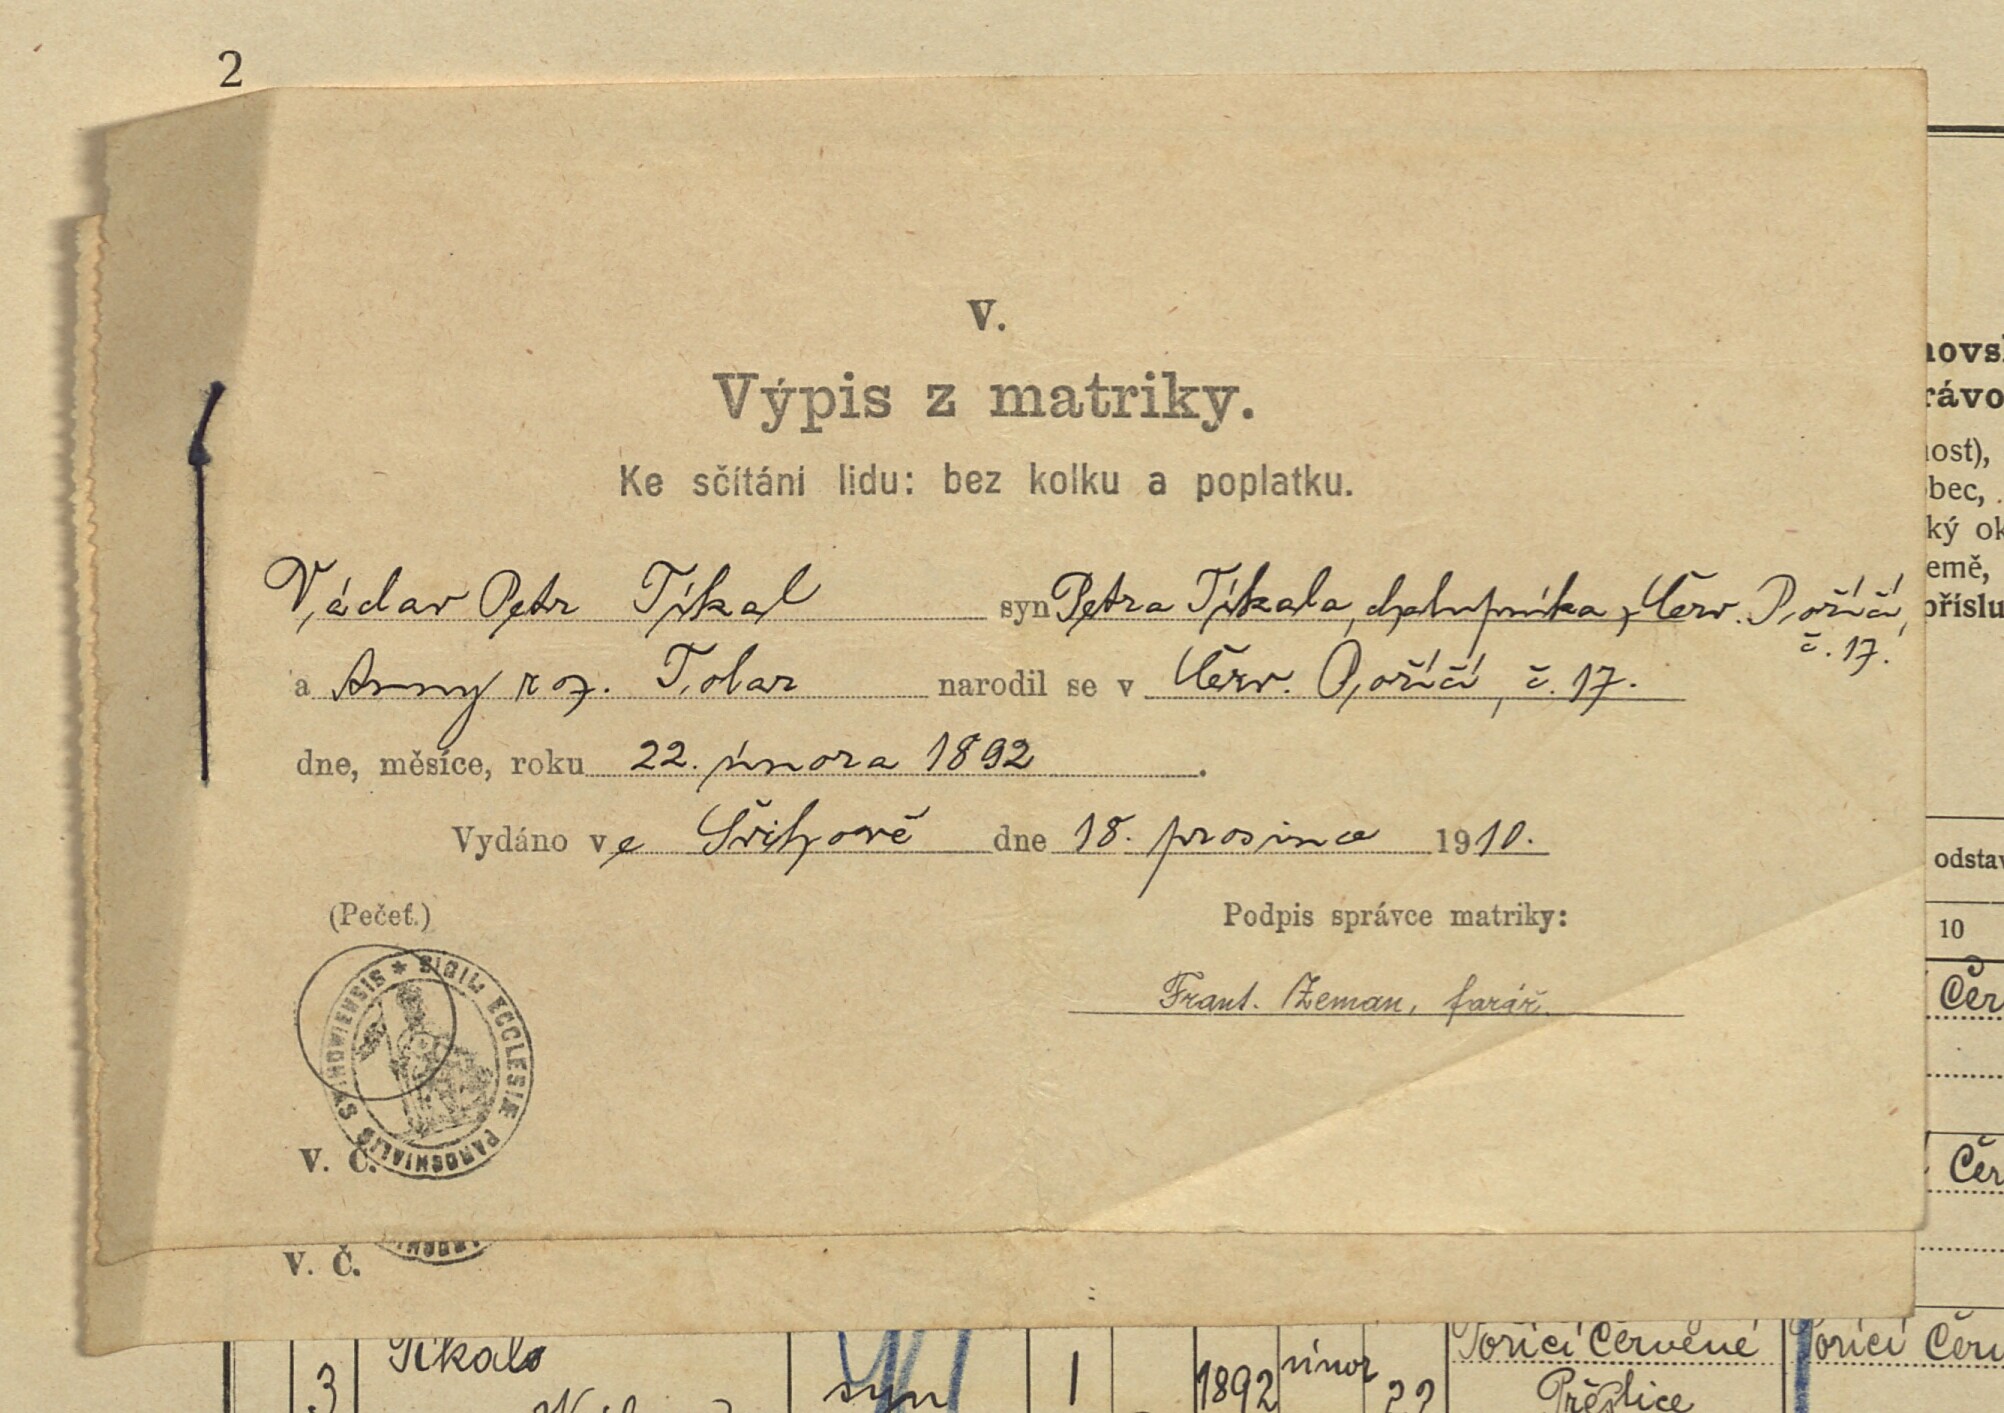 2
V.
Výpis z matriky.
Ke sčítání lidu: bez kolku a poplatku.
Václav Petr Tikal syn Petra Tikala, chalupníka z Červ. Poříčí,
č. 17.
a Anny roz. Tolar narodil se v Červ. Poříčí, č. 17.
dne, měsíce, roku 22. února 1892.
Vydáno ve Švihově dne 18. prosince 1910.
(Pečeť.)
Podpis správce matriky:
Frant. Zeman, farář.
SIGIL. ECCLESIÆ PAROCHIALIS SVIHOVIENSIS
V. Č.
V. Č.
novsk
rávo
nost),
bec,
ký ok
emě,
příslu
odstav
10
Čer
Čer
3 Tikal syn 1 1892 únor 22 Poříčí Červené Poříčí Červ
Přeštice